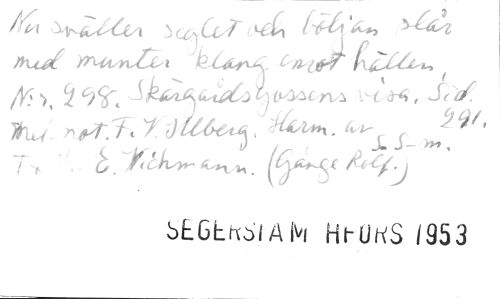 Nu sväller seglet och böljan slår
med munter klang emot hällen,
N:r. 298. Skärgårdsgossens visa. Sid. 291.
Mel. not. F. V. Illberg. Harm. av S S-m.
E. Wichmann. (Gånge Rolf.)
SEGERSTAM HFORS 1953